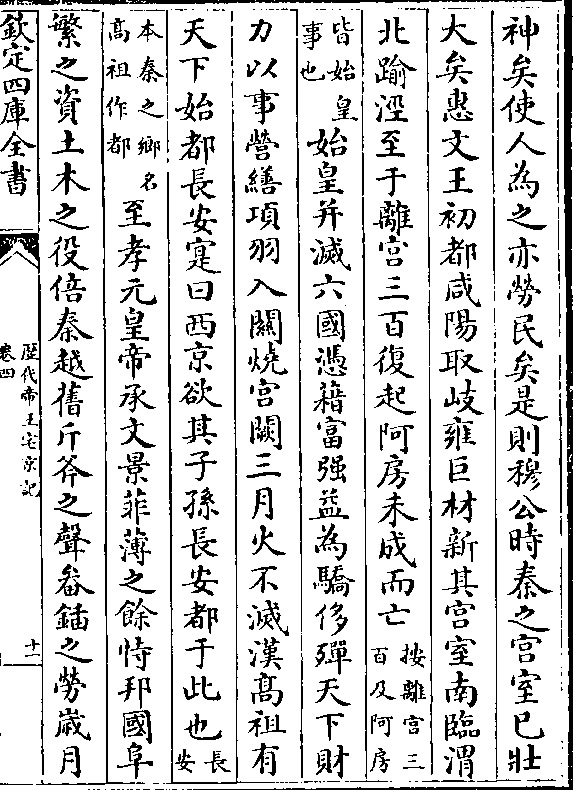 神矣使人為之亦勞民矣是則穆公時秦之宫室已壯
大矣惠文王初都咸陽取岐雍巨材新其宫室南臨渭
北踰涇至于離宫三百復起阿房未成而亡按離宫三百及阿房
皆始皇事也始皇并滅六國憑藉富强益為驕侈殫天下財
力以事營繕項羽入關燒宫闕三月火不滅漢髙祖有
天下始都長安寔曰西京欲其子孫長安都于此也長安
本秦之鄉名髙祖作都至孝元皇帝承文景菲薄之餘恃邦國阜
繁之資土木之役倍秦越舊斤斧之聲畚鍤之勞嵗月
欽定四庫全書
歴代帝王宅京記
卷四
十一